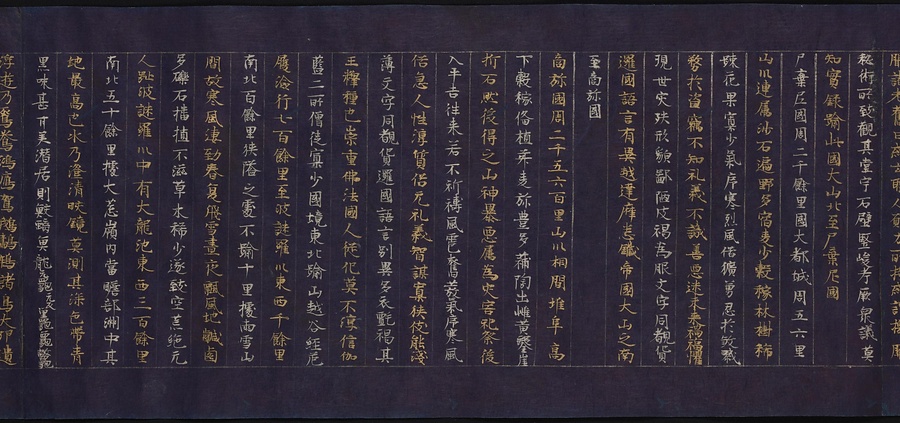 秘術所致觀其堂宇石壁堅峻考厥衆議莫
知實録踰此國大山北至尸棄尼國
尸棄尼國周二千餘里國大都城周五六里
山川連属沙石遍野多宿麦少穀稼林樹稀
踈花果寡少氣序寒烈風俗獷勇忍於煞戮
務於盗竊不知礼義不識善惡迷未来禍福懼
現世灾殃形貌鄙陋皮褐為服文字同覩貨
邏國語言有異越達摩悉鐵帝國大山之南
至商弥國
商弥國周二千五六百里山川相間堆阜高
下穀稼俻植菽麦弥豊多蒲陶出雌黄鑿崖
析石然後得之山神暴惡属為灾害祀祭後
入平吉往来若不祈禱風雹奮發氣序寒風
俗急人性淳質俗无礼義智謀寡狭伎能淺
薄文字同覩貨邏國語言別異多衣㲲褐其
王釋種也崇重佛法國人従化莫不淳信伽
藍二所僧徒寡少國境東北踰山越谷経危
履險行七百餘里至波謎羅川東西千餘里
南北百餘里狭隘之處不踰十里據両雪山
間故寒風淒勁春夏飛雪晝夜飄風地鹹鹵
多礫石播植不滋草木稀少遂致空荒絶无
人趾波謎羅川中有大龍池東西三百餘里
南北五十餘里據大葱嶺内當贍部洲中其
地最髙也水乃澄清皎鏡莫測其深色帯青
黒味甚甘美潜居則鮫螭魚龍黿鼉龜鼈
浮遊乃鴛鴦鴻鴈駕鵝鷫鵠諸鳥大卵遺